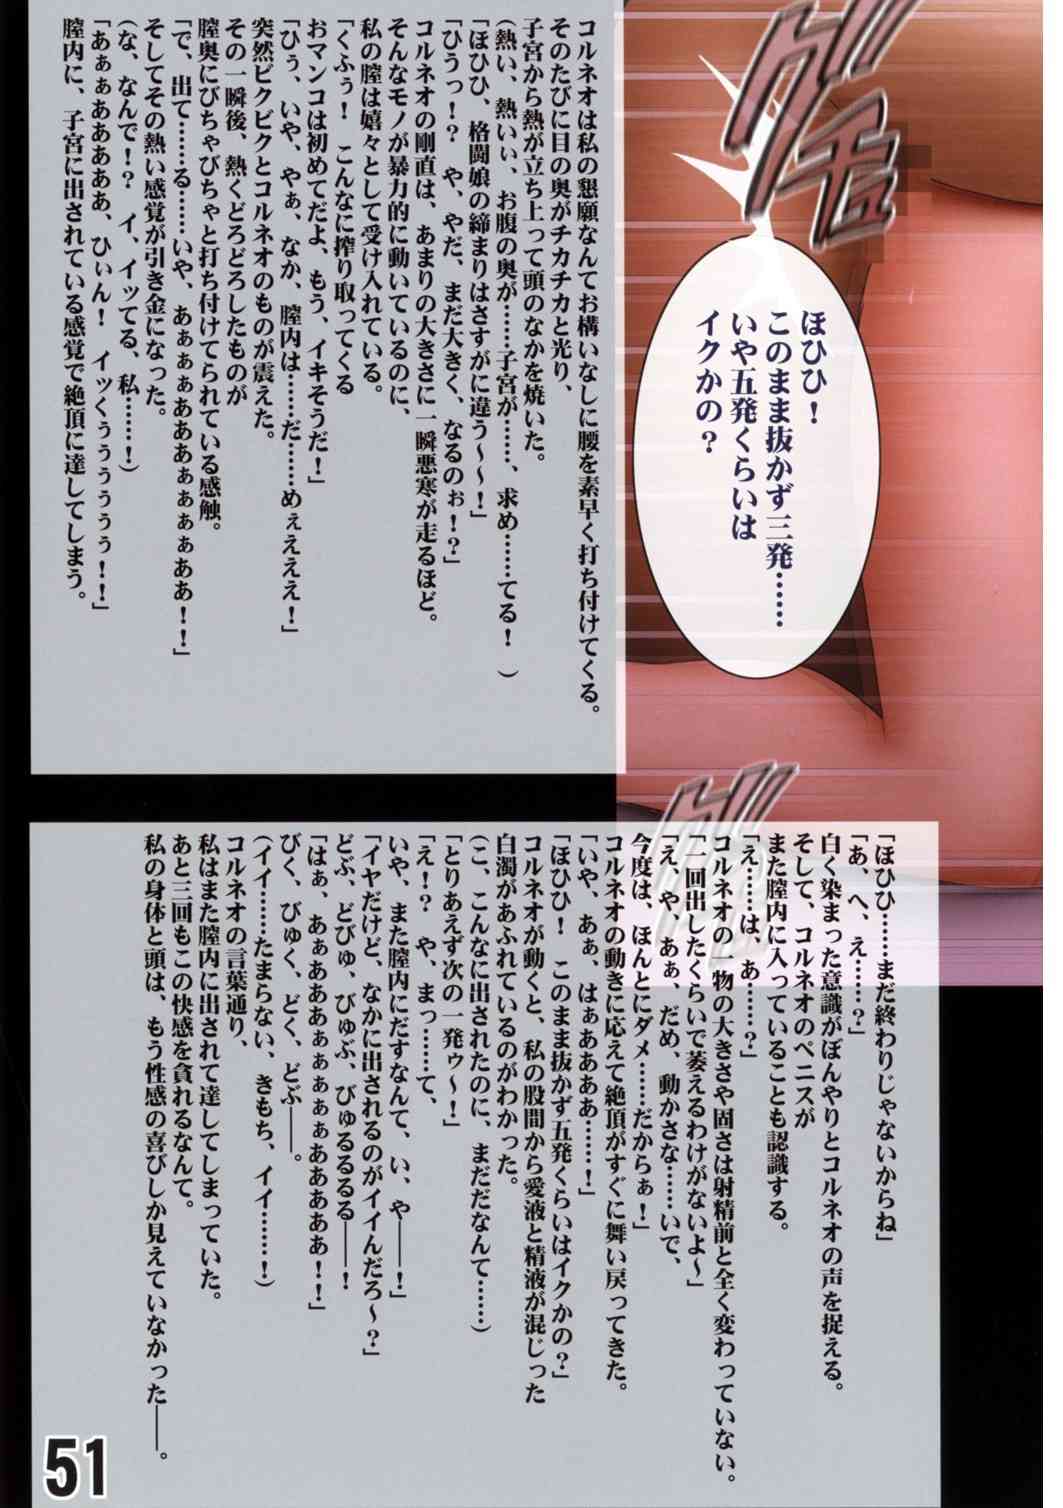 ほひひ！
このまま抜かず三発……
いや五発くらいは
イクかの？
コルネオは私の懇願なんてお構いなしに腰を素早く打ち付けてくる。
そのたびに目の奥がチカチカと光り、
子宮から熱が立ち上って頭のなかを焼いた。
（熱い、熱いぃ、お腹の奥が……子宮が……、求め……てる！　）
「ほひひ、格闘娘の締まりはさすがに違う～～！」
「ひうっ！？　や、やだ、まだ大きく、なるのぉ！？」
コルネオの剛直は、あまりの大きさに一瞬悪寒が走るほど。
そんなモノが暴力的に動いているのに、
私の膣は嬉々として受け入れている。
「くふぅ！　こんなに搾り取ってくる
おマンコは初めてだよ、もう、イキそうだ！」
「ひぅ、いや、やぁ、なか、膣内は……だ……めぇえええ！」
突然ビクビクとコルネオのものが震えた。
その一瞬後、熱くどろどろしたものが
膣奥にびちゃびちゃと打ち付けてられている感触。
「で、出て……る……いや、あぁぁぁあああぁぁぁぁああ！！」
そしてその熱い感覚が引き金になった。
（な、なんで！？　イ、イッてる、私……！）
「あぁぁああああああ、ひぃん！　イッくぅぅぅぅぅ！！」
膣内に、子宮に出されている感覚で絶頂に達してしまう。
「ほひひ……まだ終わりじゃないからね」
「あ、へ、え……？」
白く染まった意識がぼんやりとコルネオの声を捉える。
そして、コルネオのペニスが
また膣内に入っていることも認識する。
「え……は、あ……？」
コルネオの一物の大きさや固さは射精前と全く変わっていない。
「一回出したくらいで萎えるわけがないよ～」
「え、や、あぁ、だめ、動かさな……いで、
今度は、ほんとにダメ……だからぁ！」
コルネオの動きに応えて絶頂がすぐに舞い戻ってきた。
「いや、あぁ、はぁあああ……！」
「ほひひ！　このまま抜かず五発くらいはイクかの？」
コルネオが動くと、私の股間から愛液と精液が混じった
白濁があふれているのがわかった。
（こ、こんなに出されたのに、まだだなんて……）
「とりあえず次の一発ゥ～！」
「え！？　や、まっ……て、
いや、また膣内にだすなんて、い、や――！」
「イヤだけど、なかに出されるのがイイんだろ～？」
どぶ、どびゅ、びゅぶ、びゅるるるる――！
「はぁ、あぁあああぁぁぁぁあああああ！！」
びく、びゅく、どく、どぶ――。
（イイ……たまらない、きもち、イイ……！）
コルネオの言葉通り、
私はまた膣内に出されて達してしまっていた。
あと三回もこの快感を貪れるなんて。
私の身体と頭は、もう性感の喜びしか見えていなかった――。
51